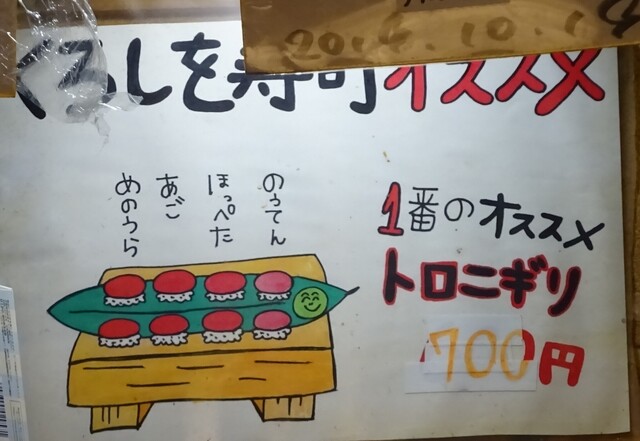 2014.10.19
くろしを寿司オススメ
1番のオススメ
トロニギリ
700円
のうてん
ほっぺた
あご
めのうら